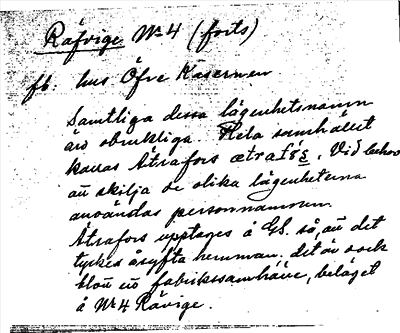 Räfvige No 4 (forts)
fb: hus Öfre Kasernen
Samtliga dessa lägenhetsnamn
äro obrukliga. Hela samhället
kallas Ätrafors ætrafå̀s̱. Vid behov
att skilja de olika lägenheterna
användas personnamnen.
Ätrafors upptages å GS. så, att det
tyckes åsyfta hemman, det är dock
blott ett fabrikssamhälle, beläget
å No 4 Rävige.